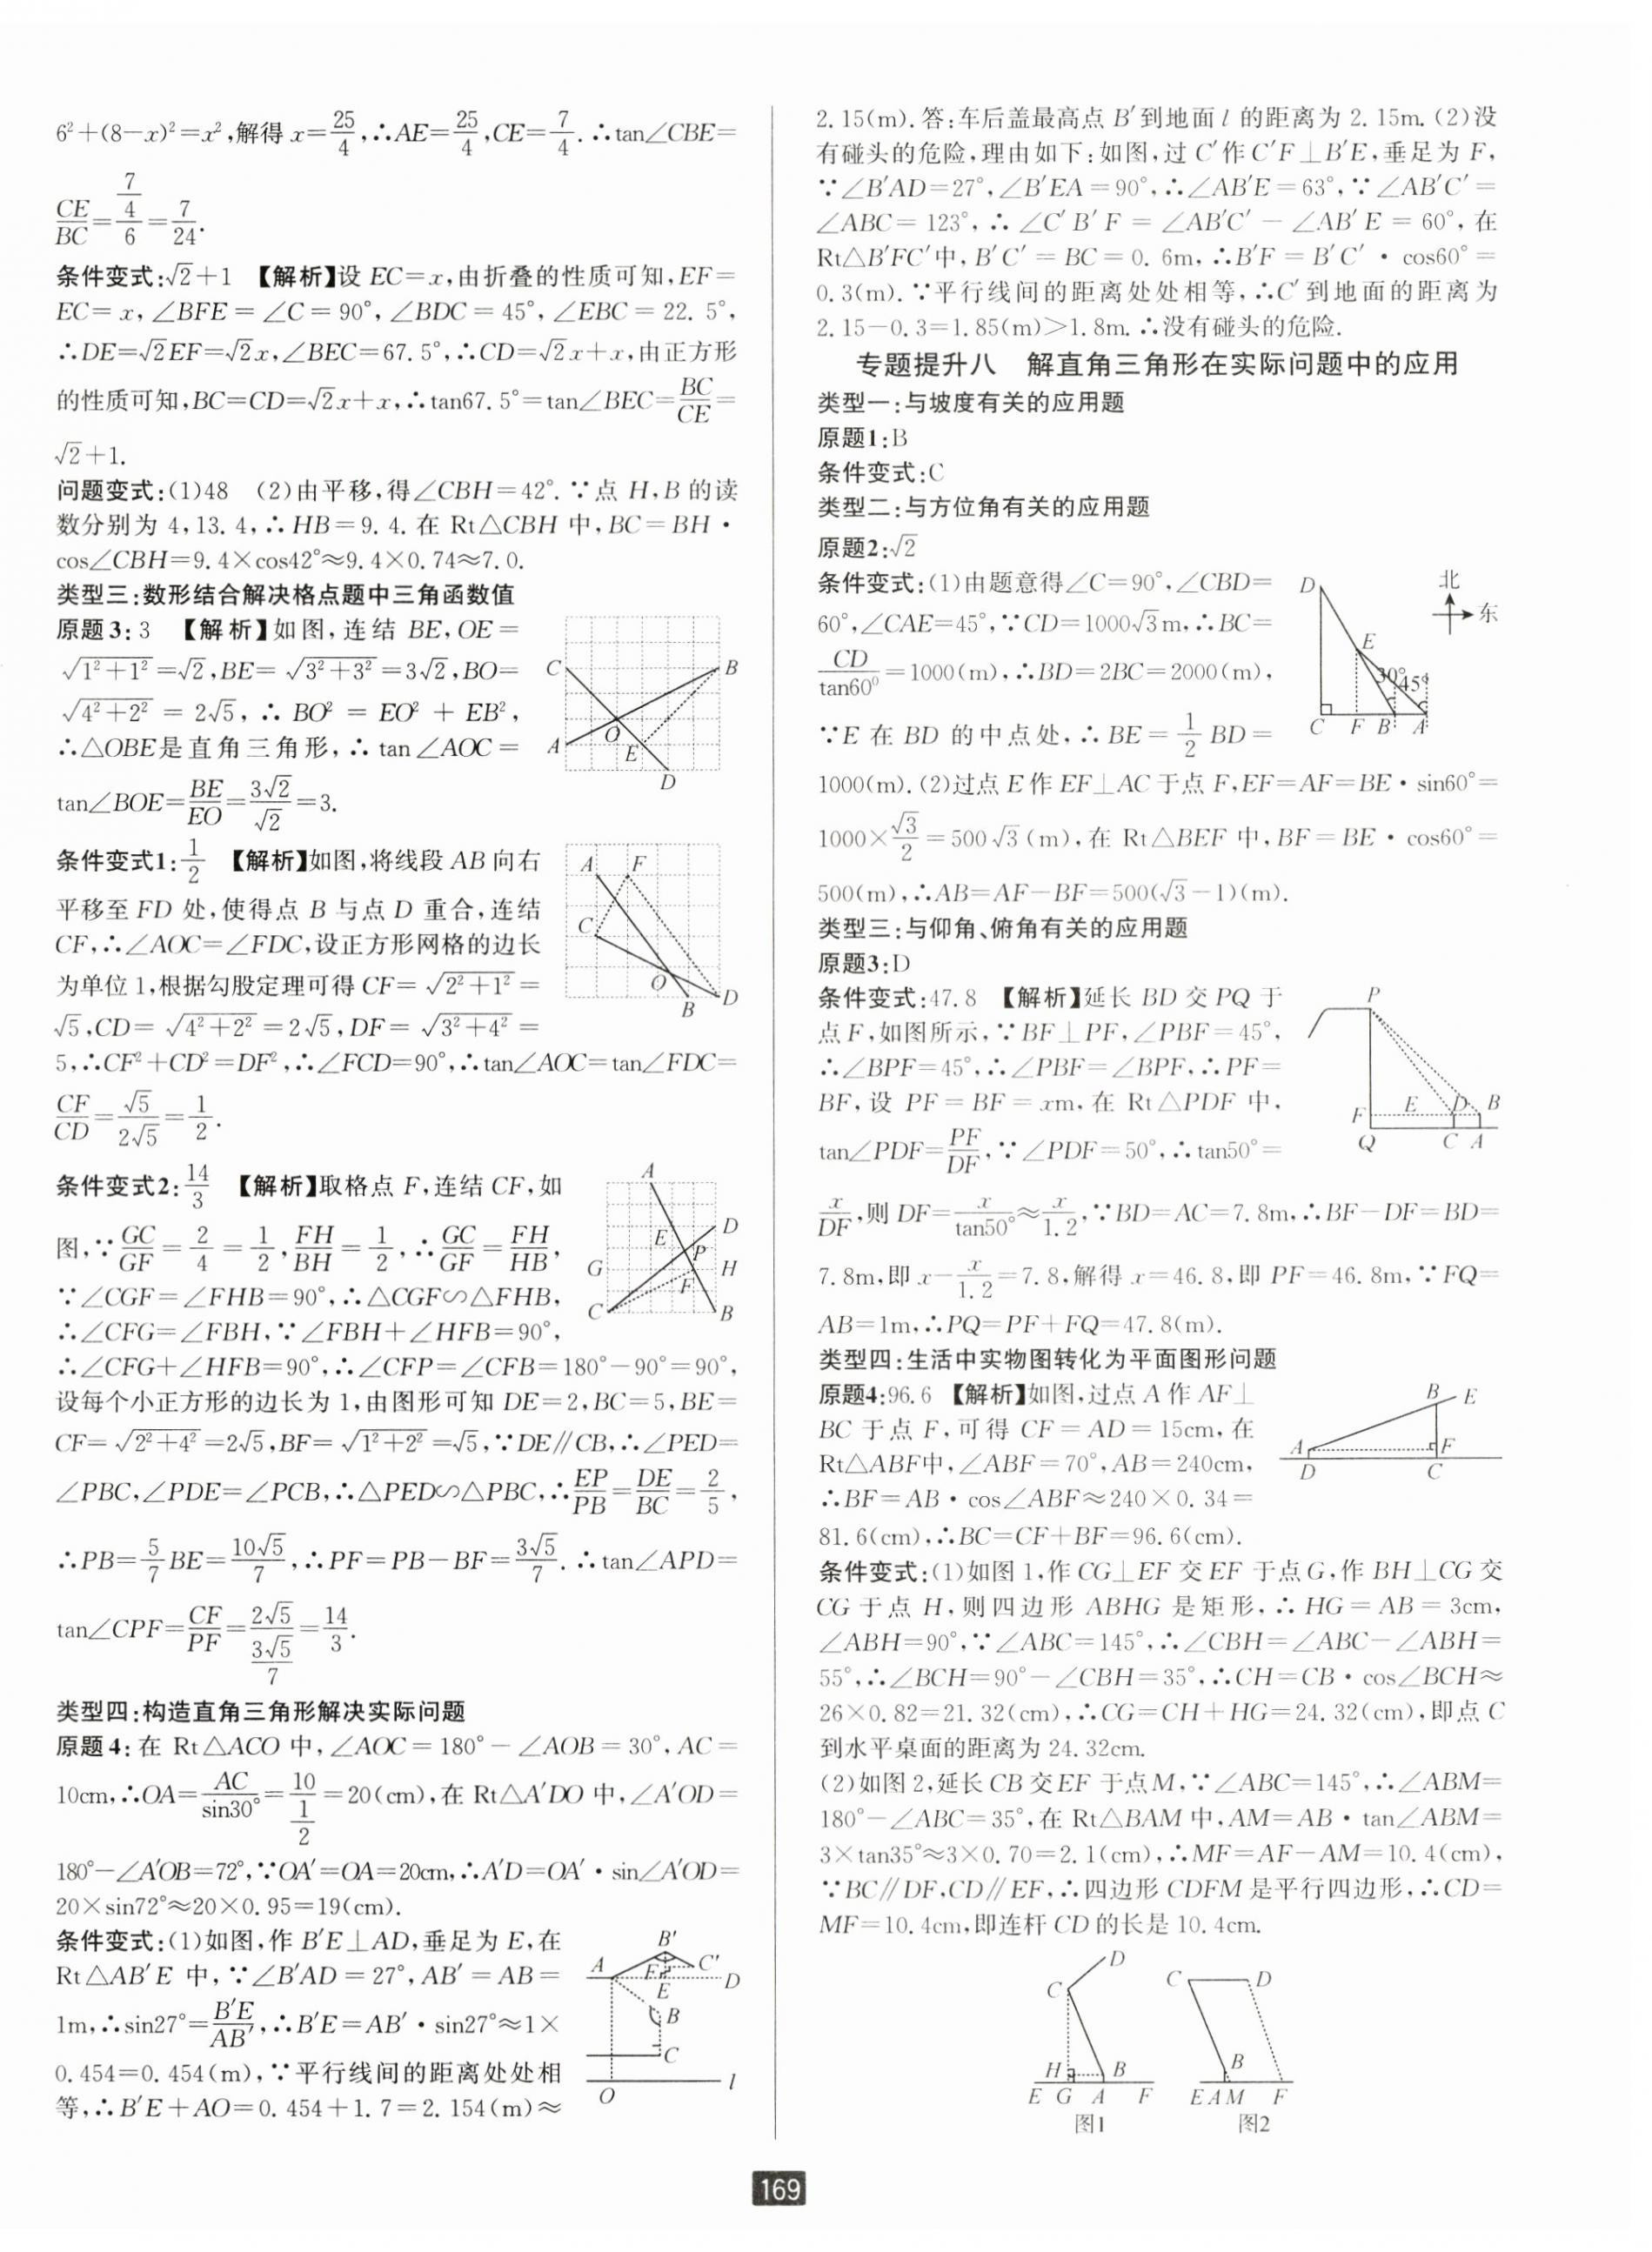 6²+(8−x)²=x²,解得 x=25/4,∴AE=25/4,CE=7/4.∴tan∠CBE=
CE/BC=(7/4)/6=7/24.
条件变式:√2+1 【解析】设 EC=x,由折叠的性质可知,EF=
EC=x,∠BFE=∠C=90°,∠BDC=45°,∠EBC=22.5°,
∴DE=√2EF=√2x,∠BEC=67.5°,∴CD=√2x+x,由正方形
的性质可知,BC=CD=√2x+x,∴tan67.5°=tan∠BEC=BC/CE=
√2+1.
问题变式:(1)48 (2)由平移,得∠CBH=42°.∵点 H,B 的读
数分别为 4,13.4,∴HB=9.4.在 Rt△CBH 中,BC=BH·
cos∠CBH=9.4×cos42°≈9.4×0.74≈7.0.
类型三:数形结合解决格点题中三角函数值
原题3:3 【解析】如图,连结 BE,OE=
√(1²+1²)=√2,BE=√(3²+3²)=3√2,BO=
√(4²+2²)=2√5,∴BO²=EO²+EB²,
∴△OBE是直角三角形,∴tan∠AOC=
tan∠BOE=BE/EO=3√2/√2=3.
C B O A E D
条件变式1:1/2 【解析】如图,将线段 AB 向右
平移至 FD 处,使得点 B 与点 D 重合,连结
CF,∴∠AOC=∠FDC,设正方形网格的边长
为单位 1,根据勾股定理可得 CF=√(2²+1²)=
√5,CD=√(4²+2²)=2√5,DF=√(3²+4²)=
5,∴CF²+CD²=DF²,∴∠FCD=90°,∴tan∠AOC=tan∠FDC=
CF/CD=√5/2√5=1/2.
A F C O B D
条件变式2:14/3 【解析】取格点 F,连结 CF,如
图,∵GC/GF=2/4=1/2,FH/BH=1/2,∴GC/GF=FH/HB,
∵∠CGF=∠FHB=90°,∴△CGF∽△FHB,
∴∠CFG=∠FBH,∵∠FBH+∠HFB=90°,
∴∠CFG+∠HFB=90°,∴∠CFP=∠CFB=180°−90°=90°,
设每个小正方形的边长为 1,由图形可知 DE=2,BC=5,BE=
CF=√(2²+4²)=2√5,BF=√(1²+2²)=√5,∵DE∥CB,∴∠PED=
∠PBC,∠PDE=∠PCB,∴△PED∽△PBC,∴EP/PB=DE/BC=2/5,
∴PB=5/7BE=10√5/7,∴PF=PB−BF=3√5/7.∴tan∠APD=
tan∠CPF=CF/PF=2√5/(3√5/7)=14/3.
A D E P G H F C B
类型四:构造直角三角形解决实际问题
原题4:在 Rt△ACO 中,∠AOC=180°−∠AOB=30°,AC=
10cm,∴OA=AC/sin30°=10/(1/2)=20(cm),在 Rt△A′DO 中,∠A′OD=
180°−∠A′OB=72°,∵OA′=OA=20cm,∴A′D=OA′·sin∠A′OD=
20×sin72°≈20×0.95=19(cm).
条件变式:(1)如图,作 B′E⊥AD,垂足为 E,在
Rt△AB′E 中,∵∠B′AD=27°,AB′=AB=
1m,∴sin27°=B′E/AB′,∴B′E=AB′·sin27°≈1×
0.454=0.454(m),∵平行线间的距离处处相
等,∴B′E+AO=0.454+1.7=2.154(m)≈
B′ A C′ F D E B C l O
2.15(m).答:车后盖最高点 B′到地面 l 的距离为 2.15m.(2)没
有碰头的危险,理由如下:如图,过 C′作 C′F⊥B′E,垂足为 F,
∵∠B′AD=27°,∠B′EA=90°,∴∠AB′E=63°,∵∠AB′C′=
∠ABC=123°,∴∠C′B′F=∠AB′C′−∠AB′E=60°,在
Rt△B′FC′中,B′C′=BC=0.6m,∴B′F=B′C′·cos60°=
0.3(m).∵平行线间的距离处处相等,∴C′到地面的距离为
2.15−0.3=1.85(m)>1.8m.∴没有碰头的危险.
专题提升八 解直角三角形在实际问题中的应用
类型一:与坡度有关的应用题
原题1:B
条件变式:C
类型二:与方位角有关的应用题
原题2:√2
条件变式:(1)由题意得∠C=90°,∠CBD=
60°,∠CAE=45°,∵CD=1000√3m,∴BC=
CD/tan60°=1000(m),∴BD=2BC=2000(m),
∵E 在 BD 的中点处,∴BE=1/2BD=
1000(m).(2)过点 E 作 EF⊥AC 于点 F,EF=AF=BE·sin60°=
1000×√3/2=500√3(m),在 Rt△BEF 中,BF=BE·cos60°=
500(m),∴AB=AF−BF=500(√3−1)(m).
D 北 东 E 30° 45° C F B A
类型三:与仰角、俯角有关的应用题
原题3:D
条件变式:47.8 【解析】延长 BD 交 PQ 于
点 F,如图所示,∵BF⊥PF,∠PBF=45°,
∴∠BPF=45°,∴∠PBF=∠BPF,∴PF=
BF,设 PF=BF=xm,在 Rt△PDF 中,
tan∠PDF=PF/DF,∵∠PDF=50°,∴tan50°=
x/DF,则 DF=x/tan50°≈x/1.2,∵BD=AC=7.8m,∴BF−DF=BD=
7.8m,即 x−x/1.2=7.8,解得 x=46.8,即 PF=46.8m,∵FQ=
AB=1m,∴PQ=PF+FQ=47.8(m).
P E D B F Q C A
类型四:生活中实物图转化为平面图形问题
原题4:96.6 【解析】如图,过点 A 作 AF⊥
BC 于点 F,可得 CF=AD=15cm,在
Rt△ABF中,∠ABF=70°,AB=240cm,
∴BF=AB·cos∠ABF≈240×0.34=
81.6(cm),∴BC=CF+BF=96.6(cm).
B E A F D C
条件变式:(1)如图 1,作 CG⊥EF 交 EF 于点 G,作 BH⊥CG 交
CG 于点 H,则四边形 ABHG 是矩形,∴HG=AB=3cm,
∠ABH=90°,∵∠ABC=145°,∴∠CBH=∠ABC−∠ABH=
55°,∴∠BCH=90°−∠CBH=35°,∴CH=CB·cos∠BCH≈
26×0.82=21.32(cm),∴CG=CH+HG=24.32(cm),即点 C
到水平桌面的距离为 24.32cm.
(2)如图 2,延长 CB 交 EF 于点 M,∵∠ABC=145°,∴∠ABM=
180°−∠ABC=35°,在 Rt△BAM 中,AM=AB·tan∠ABM=
3×tan35°≈3×0.70=2.1(cm),∴MF=AF−AM=10.4(cm),
∵BC∥DF,CD∥EF,∴四边形 CDFM 是平行四边形,∴CD=
MF=10.4cm,即连杆 CD 的长是 10.4cm.
D C H B E G A F
图1
C D B E A M F
图2
169